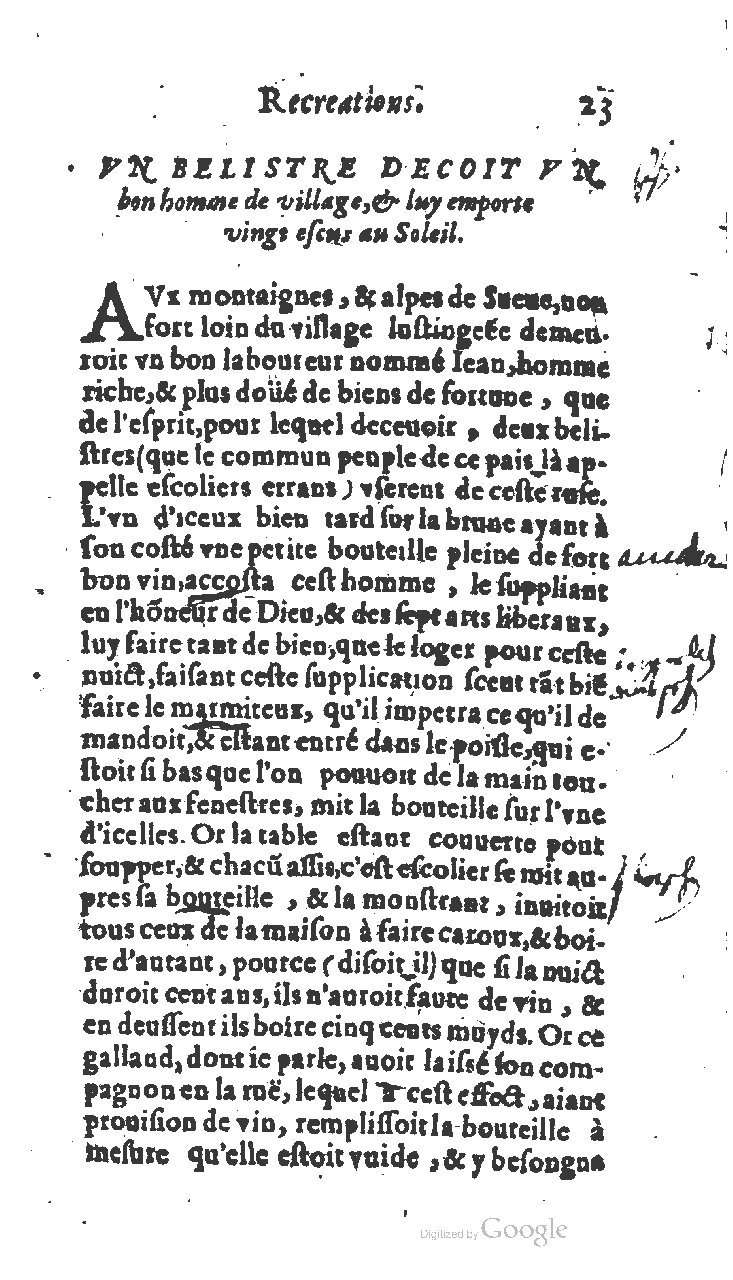 Recreations. 23
VN BELISTRE DECOIT VN
bon homme de village, & luy emporte
vingt escus au Soleil.
AVx montaignes, & alpes de Sueue, non
fort loin du village Iustingeée demeu-
roit vn bon laboureur nommé Iean, homme
riche, & plus doüé de biens de fortune, que
de l'esprit, pour lequel deceuoir, deux beli-
stres (que le commun peuple de ce païs là ap-
pelle escoliers errans) vserent de ceste ruse.
L'vn d'iceux bien tard sur la brune ayant à
son costé vne petite bouteille pleine de fort
bon vin, accosta cest homme, le suppliant
en l'hõneur de Dieu, & des sept arts liberaux,
luy faire tant de bien, que le loger pour ceste
nuict, faisant ceste supplication sceut tãt biẽ
faire le marmiteux, qu'il impetra ce qu'il de
mandoit, & estant entré dans le poisle, qui e-
stoit si bas que l'on pouuoit de la main tou-
cher aux fenestres, mit la bouteille sur l'vne
d'icelles. Or la table estant couuerte pout
soupper, & chacũ assis, c'est escolier se mit au-
pres sa bouteille, & la monstrant, inuitoit
tous ceux de la maison à faire caroux, & boi-
re d'autant, pource (disoit il) que si la nuict
duroit cent ans, ils n'auroit faute de vin, &
en deussent ils boire cinq cents muyds. Or ce
galland, dont ie parle, auoit laissé son com-
pagnon en la ruë, lequel à cest effect, aiant
prouision de vin, remplissoit la bouteille à
mesure qu'elle estoit vuide, & y besongna
Digitized by Google